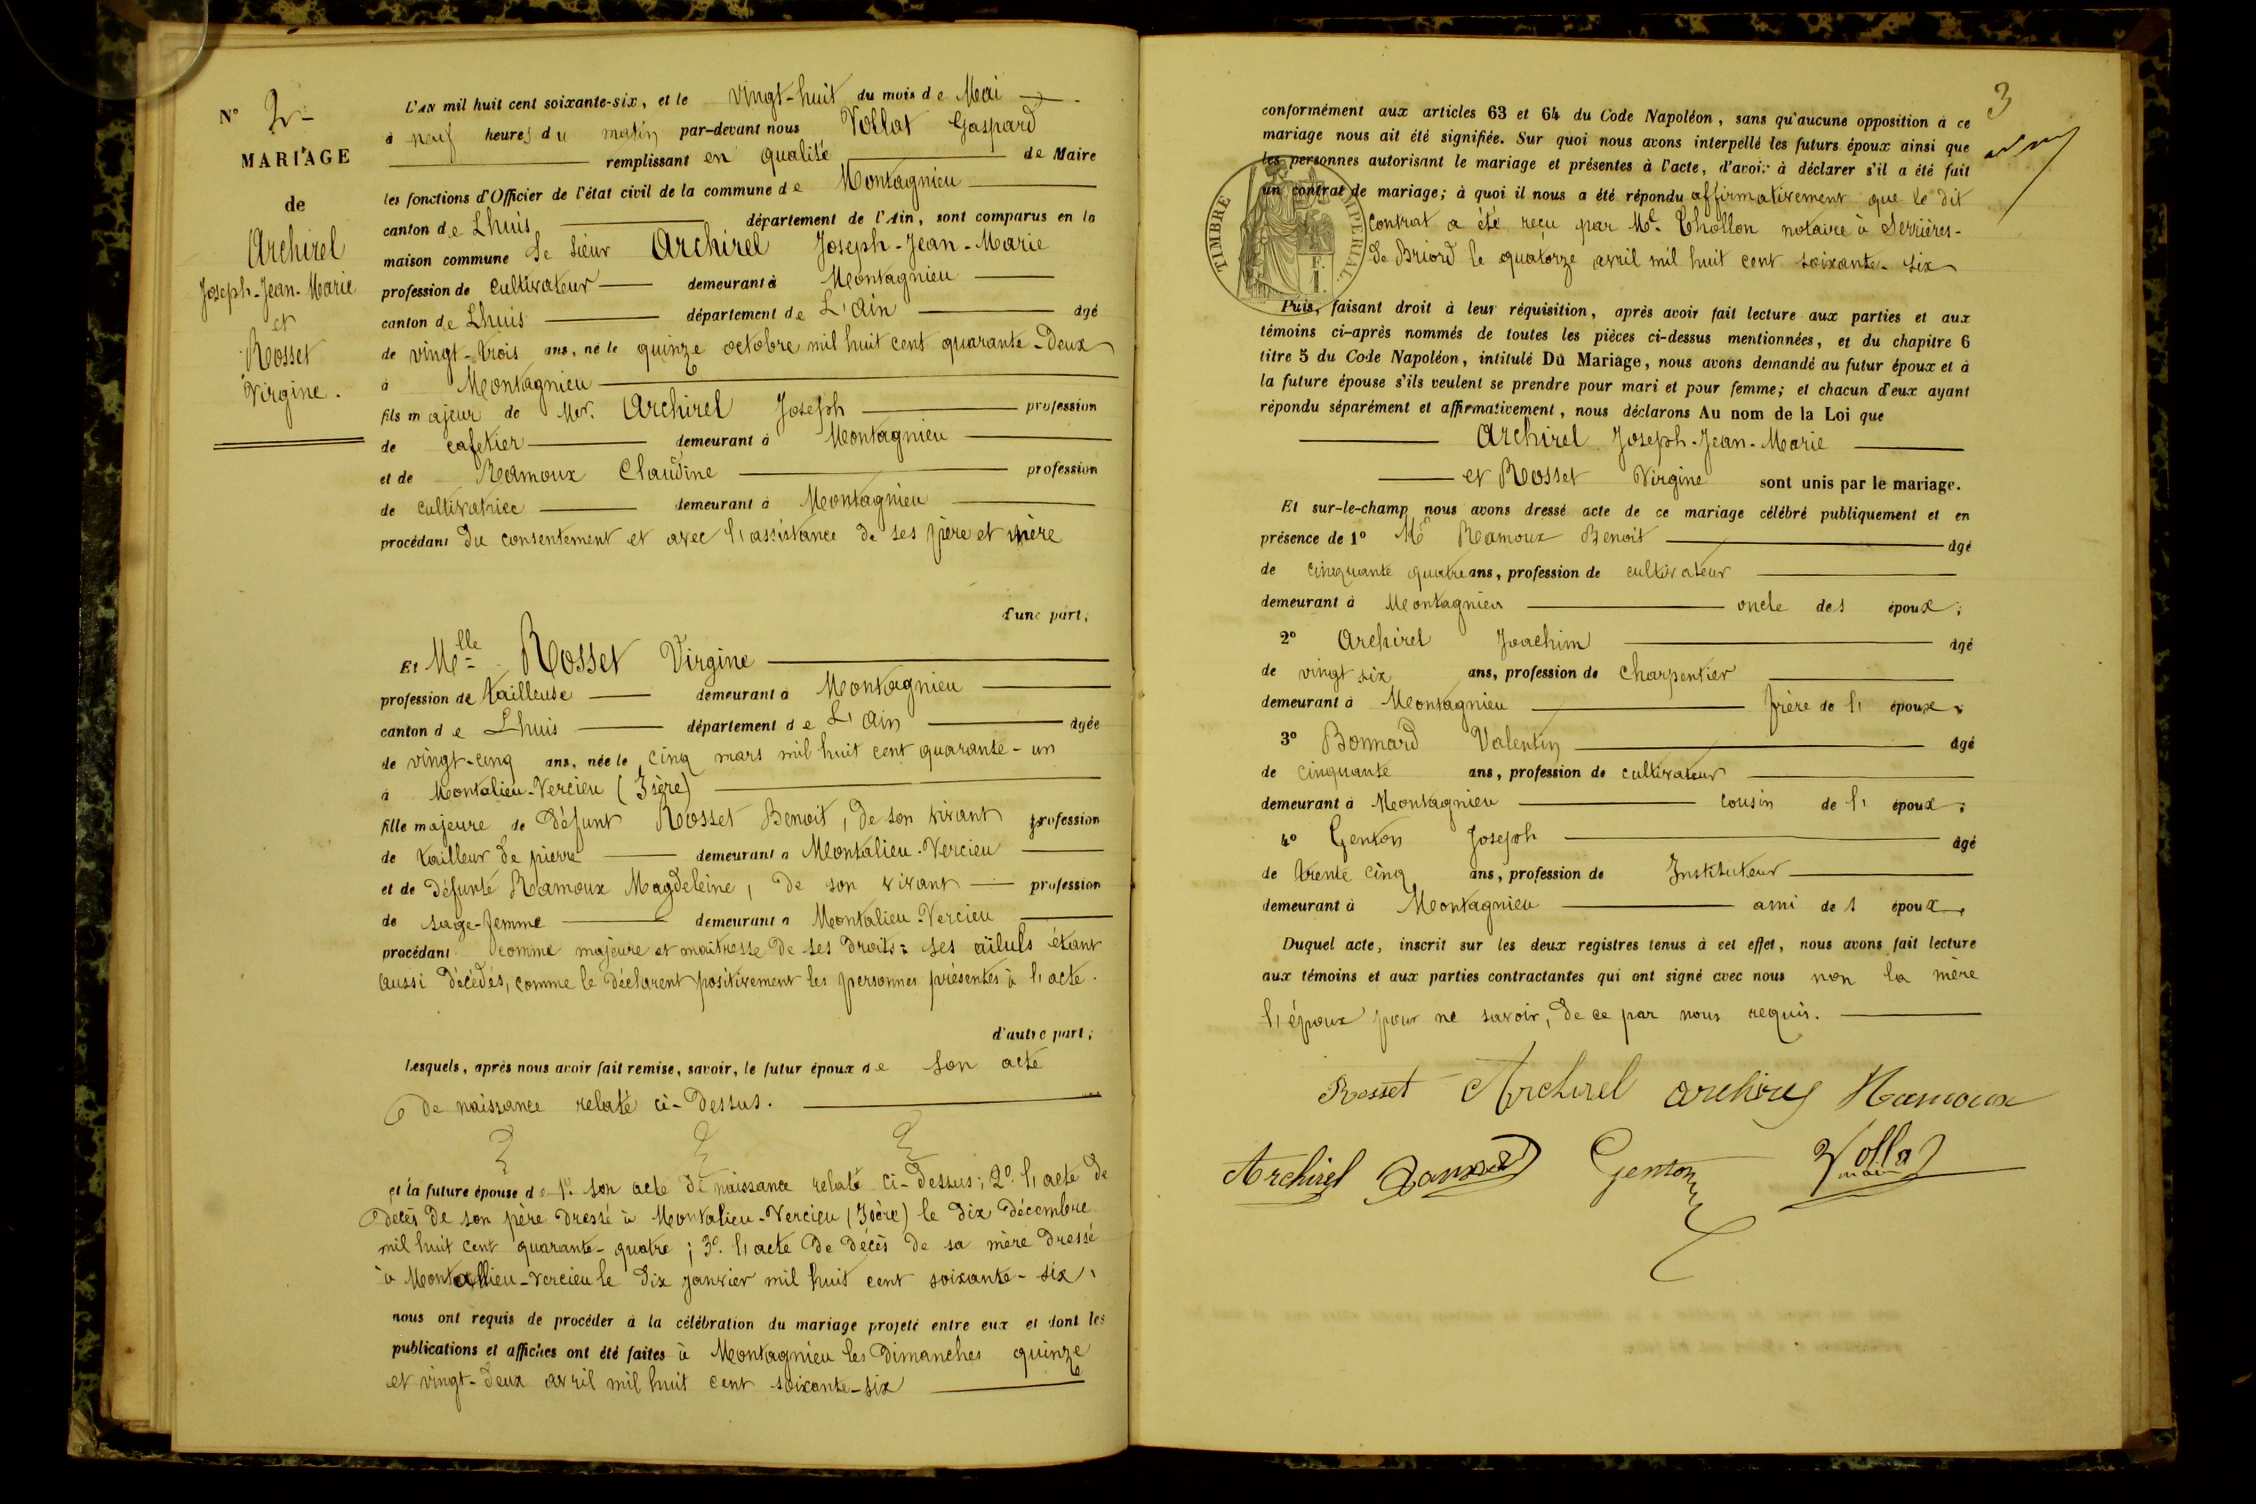 N° 2
MARIAGE
de
Archirel
Joseph-Jean-Marie
et
Rosset
Virgine.
L'AN mil huit cent soixante-six, et le vingt-huit du mois de Mai
à neuf heures du matin par-devant nous Vollat Gaspard
remplissant en qualité de Maire
les fonctions d'Officier de l'état civil de la commune de Montagnieu
canton de Lhuis département de l'Ain, sont comparus en la
maison commune le sieur Archirel Joseph-Jean-Marie
profession de cultivateur demeurant à Montagnieu
canton de Lhuis département de L'Ain âgé
de vingt-trois ans, né le quinze octobre mil huit cent quarante-deux
à Montagnieu
fils majeur de Mr. Archirel Joseph profession
de cafetier demeurant à Montagnieu
et de Ramoux Claudine profession
de cultivatrice demeurant à Montagnieu
procédant du consentement et avec l'assistance de ses père et mère
d'une part;
Et Mlle Rosset Virgine
profession de tailleuse demeurant à Montagnieu
canton de Lhuis département de L'Ain âgée
de vingt-cinq ans, née le cinq mars mil huit cent quarante-un
à Montalieu-Vercieu (Isère)
fille majeure de défunt Rosset Benoit, de son vivant profession
de tailleur de pierre demeurant à Montalieu-Vercieu
et de défunte Ramoux Magdeleine, de son vivant profession
de sage-femme demeurant à Montalieu-Vercieu
procédant comme majeure et maîtresse de ses droits: ses aïeuls étant
aussi décédés, comme le déclarent positivement les personnes présentes à l'acte.
d'autre part;
Lesquels, après nous avoir fait remise, savoir, le futur époux de son acte
de naissance relaté ci-dessus.
et la future épouse de 1° son acte de naissance relaté ci-dessus; 2° l'acte de
décès de son père dressé à Montalieu-Vercieu (Isère) le dix décembre
mil huit cent quarante-quatre; 3° l'acte de décès de sa mère dressé
à Montallieu-Vercieu le dix janvier mil huit cent soixante-six,
nous ont requis de procéder à la célébration du mariage projeté entre eux et dont les
publications et affiches ont été faites à Montagnieu les Dimanches quinze
et vingt-deux avril mil huit cent soixante-six
3
conformément aux articles 63 et 64 du Code Napoléon, sans qu'aucune opposition à ce
mariage nous ait été signifiée. Sur quoi nous avons interpellé les futurs époux ainsi que
les personnes autorisant le mariage et présentes à l'acte, d'avoir à déclarer s'il a été fait
un contrat de mariage; à quoi il nous a été répondu affirmativement que le dit
contrat a été reçu par Me. Thollon notaire à Serrières-
de Briord le quatorze avril mil huit cent soixante-six
TIMBRE IMPERIAL.
F.
1.
Puis, faisant droit à leur réquisition, après avoir fait lecture aux parties et aux
témoins ci-après nommés de toutes les pièces ci-dessus mentionnées, et du chapitre 6
titre 5 du Code Napoléon, intitulé Du Mariage, nous avons demandé au futur époux et à
la future épouse s'ils veulent se prendre pour mari et pour femme; et chacun d'eux ayant
répondu séparément et affirmativement, nous déclarons Au nom de la Loi que
Archirel Joseph-Jean-Marie
et Rosset Virgine sont unis par le mariage.
Et sur-le-champ nous avons dressé acte de ce mariage célébré publiquement et en
présence de 1° Mr Ramoux Benoit âgé
de cinquante quatre ans, profession de cultivateur
demeurant à Montagnieu oncle des époux;
2° Archirel Joachim âgé
de vingt six ans, profession de charpentier
demeurant à Montagnieu frère de l'époux;
3° Bonnard Valentin âgé
de cinquante ans, profession de cultivateur
demeurant à Montagnieu cousin de l'époux;
4° Genton Joseph âgé
de trente cinq ans, profession de Instituteur
demeurant à Montagnieu ami des époux,
Duquel acte, inscrit sur les deux registres tenus à cet effet, nous avons fait lecture
aux témoins et aux parties contractantes qui ont signé avec nous non la mère
l'époux pour ne savoir, de ce par nous requis.
Rosset Archirel archirel Ramoux
Archirel Bonnard Genton Vollat
maire